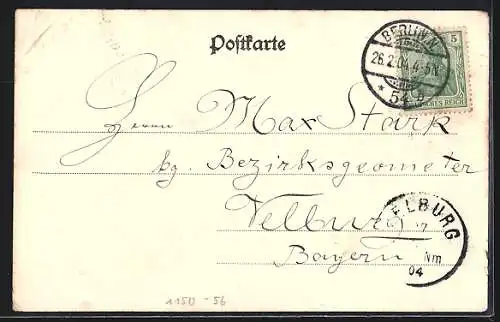 Postkarte
BERLIN N.
26.2.04.4-5N.
* 54
5
DEUTSCHES REICH
Herrn Max Stark
kg. Bezirksgeometer
Velburg
Bayern
ELBURG
Nm
04
1150-56